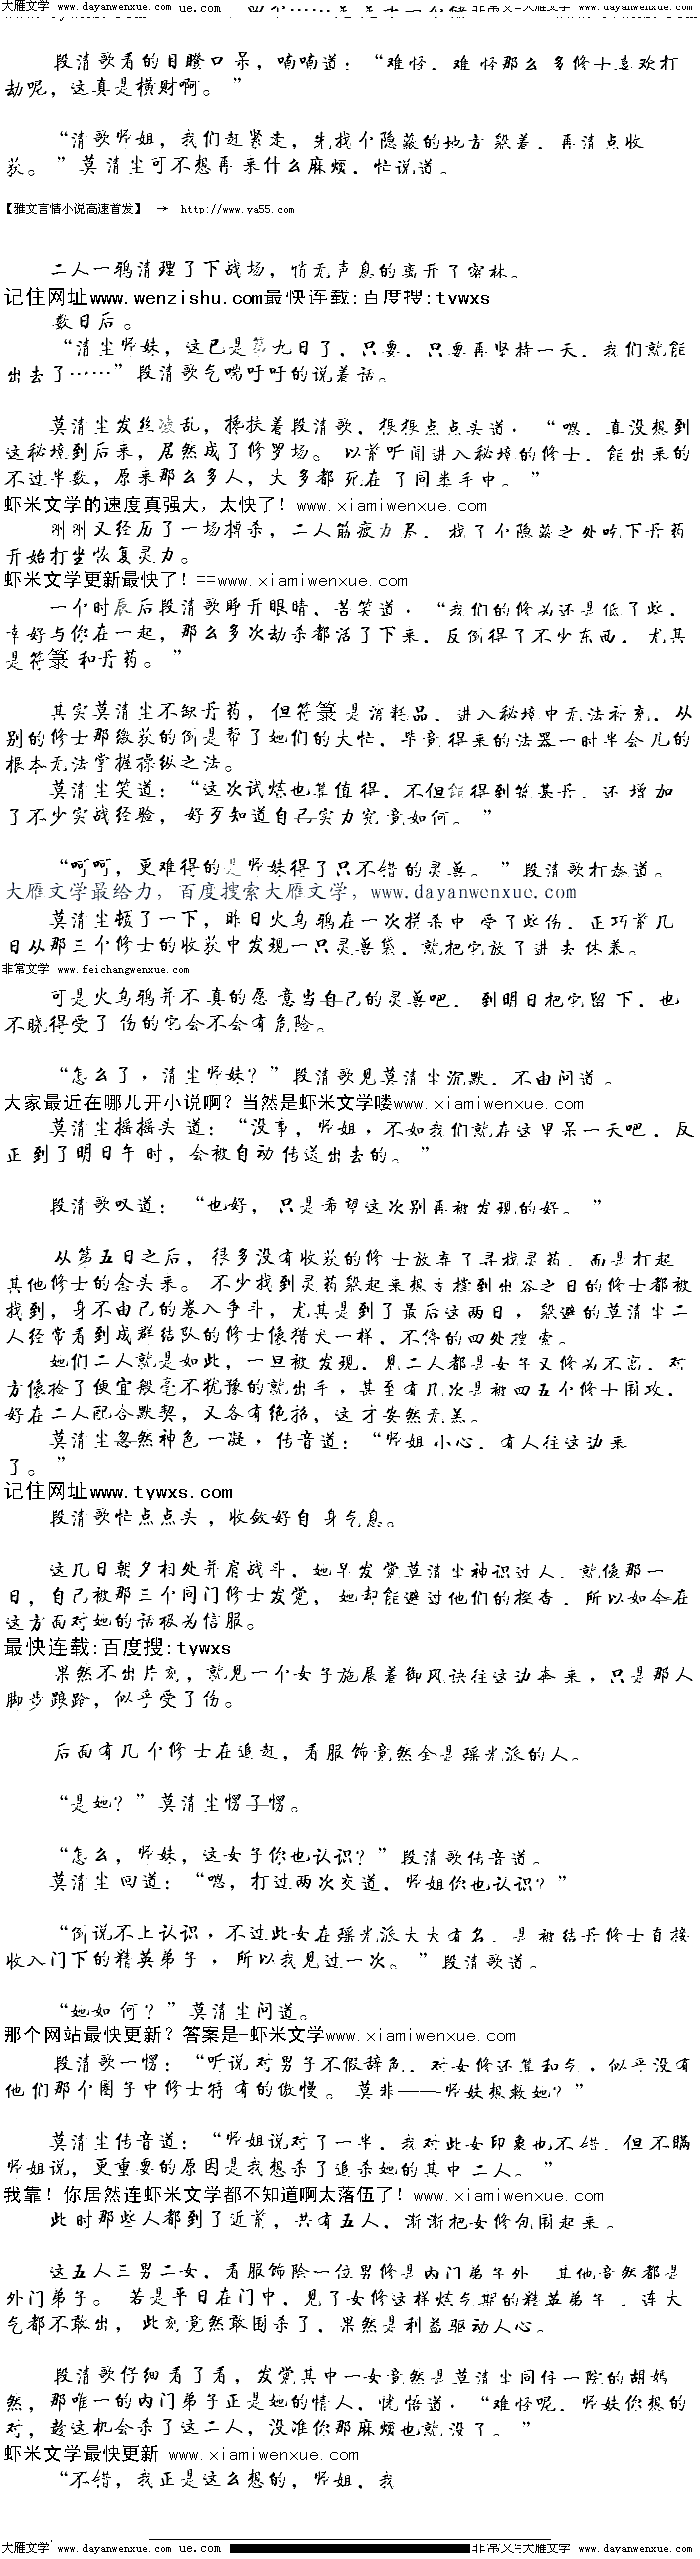 大雁文学 www.dayanwenxue.com ue.com 非常文学大雁文学 www.dayanwenxue.com
段清歌看的目瞪口呆，喃喃道：“难怪，难怪那么多修士喜欢打
劫呢，这真是横财啊。”
“清歌师姐，我们赶紧走，先找个隐蔽的地方躲着，再清点收
获。”莫清尘可不想再来什么麻烦，忙说道。
【雅文言情小说高速首发】 → http://www.ya55.com
二人一鸦清理了下战场，悄无声息的离开了密林。
记住网址www.wenzishu.com最快连载:百度搜:tywxs
数日后。
“清尘师妹，这已是第九日了，只要，只要再坚持一天，我们就能
出去了……”段清歌气喘吁吁的说着话。
莫清尘发丝凌乱，搀扶着段清歌，狠狠点点头道：“嗯，真没想到
这秘境到后来，居然成了修罗场。以前听闻进入秘境的修士，能出来的
不过半数，原来那么多人，大多都死在了同类手中。”
虾米文学的速度真强大，太快了！www.xiamiwenxue.com
刚刚又经历了一场搏杀，二人筋疲力尽，找了个隐蔽之处吃下丹药
开始打坐恢复灵力。
虾米文学更新最快了！==www.xiamiwenxue.com
一个时辰后段清歌睁开眼睛，苦笑道：“我们的修为还是低了些，
幸好与你在一起，那么多次劫杀都活了下来，反倒得了不少东西，尤其
是符箓和丹药。”
其实莫清尘不缺丹药，但符箓是消耗品，进入秘境中无法补充，从
别的修士那缴获的倒是帮了她们的大忙，毕竟得来的法器一时半会儿的
根本无法掌握操纵之法。
莫清尘笑道：“这次试炼也算值得，不但能得到筑基丹，还增加
了不少实战经验，好歹知道自己实力究竟如何。”
“呵呵，更难得的是师妹得了只不错的灵兽。”段清歌打趣道。
大雁文学最给力，百度搜索大雁文学，www.dayanwenxue.com
莫清尘顿了一下，昨日火乌鸦在一次拼杀中受了些伤，正巧前几
日从那三个修士的收获中发现一只灵兽袋，就把它放了进去休养。
非常文学 www.feichangwenxue.com
可是火乌鸦并不真的愿意当自己的灵兽吧，到明日把它留下，也
不晓得受了伤的它会不会有危险。
“怎么了，清尘师妹？”段清歌见莫清尘沉默，不由问道。
大家最近在哪儿开小说啊？当然是虾米文学喽www.xiamiwenxue.com
莫清尘摇摇头道：“没事，师姐，不如我们就在这里呆一天吧，反
正到了明日午时，会被自动传送出去的。”
段清歌叹道：“也好，只是希望这次别再被发现的好。”
从第五日之后，很多没有收获的修士放弃了寻找灵药，而是打起
其他修士的念头来。不少找到灵药躲起来想支撑到出谷之日的修士都被
找到，身不由己的卷入争斗，尤其是到了最后这两日，躲避的莫清尘二
人经常看到成群结队的修士像猎犬一样，不停的四处搜索。
她们二人就是如此，一旦被发现，见二人都是女子又修为不高，对
方像捡了便宜般毫不犹豫的就出手，甚至有几次是被四五个修士围攻，
好在二人配合默契，又各有绝招，这才安然无恙。
莫清尘忽然神色一凝，传音道：“师姐小心，有人往这边来
了。”
记住网址www.tywxs.com
段清歌忙点点头，收敛好自身气息。
这几日朝夕相处并肩战斗，她早发觉莫清尘神识过人，就像那一
日，自己被那三个同门修士发觉，她却能避过他们的探查，所以如今在
这方面对她的话极为信服。
最快连载:百度搜:tywxs
果然不出片刻，就见一个女子施展着御风诀往这边奔来，只是那人
脚步踉跄，似乎受了伤。
后面有几个修士在追赶，看服饰竟然全是瑶光派的人。
“是她？”莫清尘愣了愣。
“怎么，师妹，这女子你也认识？”段清歌传音道。
莫清尘回道：“嗯，打过两次交道，师姐你也认识？”
“倒说不上认识，不过此女在瑶光派大大有名，是被结丹修士直接
收入门下的精英弟子，所以我见过一次。”段清歌道。
“她如何？”莫清尘问道。
那个网站最快更新？答案是-虾米文学www.xiamiwenxue.com
段清歌一愣：“听说对男子不假辞色，对女修还算和气，似乎没有
他们那个圈子中修士特有的傲慢。莫非——师妹想救她？”
莫清尘传音道：“师姐说对了一半，我对此女印象也不错，但不瞒
师姐说，更重要的原因是我想杀了追杀她的其中二人。”
我靠！你居然连虾米文学都不知道啊太落伍了！www.xiamiwenxue.com
此时那些人都到了近前，共有五人，渐渐把女修包围起来。
这五人三男二女，看服饰除一位男修是内门弟子外，其他竟然都是
外门弟子。若是平日在门中，见了女修这样炼气期的精英弟子，连大
气都不敢出，此刻竟然敢围杀了，果然是利益驱动人心。
段清歌仔细看了看，发觉其中一女竟然是莫清尘同住一院的胡嫣
然，那唯一的内门弟子正是她的情人，恍悟道：“难怪呢，师妹你想的
对，趁这机会杀了这二人，没准你那麻烦也就没了。”
虾米文学最快更新 www.xiamiwenxue.com
“不错，我正是这么想的，师姐，我
大雁文学 www.dayanwenxue.com ue.com 非常文学大雁文学 www.dayanwenxue.com